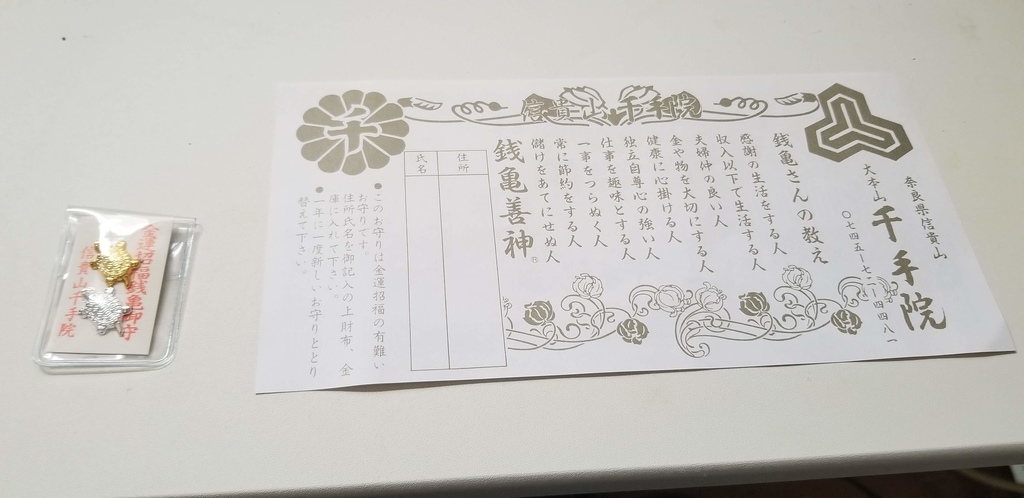 信貴山千手院
奈良県信貴山
大本山 千手院
〇七四五ー七二ー四四八一
銭亀さんの教え
感謝の生活をする人
収入以下で生活する人
夫婦仲の良い人
金や物を大切にする人
健康に心掛ける人
独立自尊心の強い人
仕事を趣味とする人
一事をつらぬく人
常に節約をする人
儲けをあてにせぬ人
銭亀善神®
住所
氏名
千
●このお守りは金運招福の有難い
お守りです。
住所氏名を御記入の上財布、金
庫に入れて下さい。
●一年に一度新しいお守りととり
替えて下さい。
金運招福銭亀御守
信貴山千手院